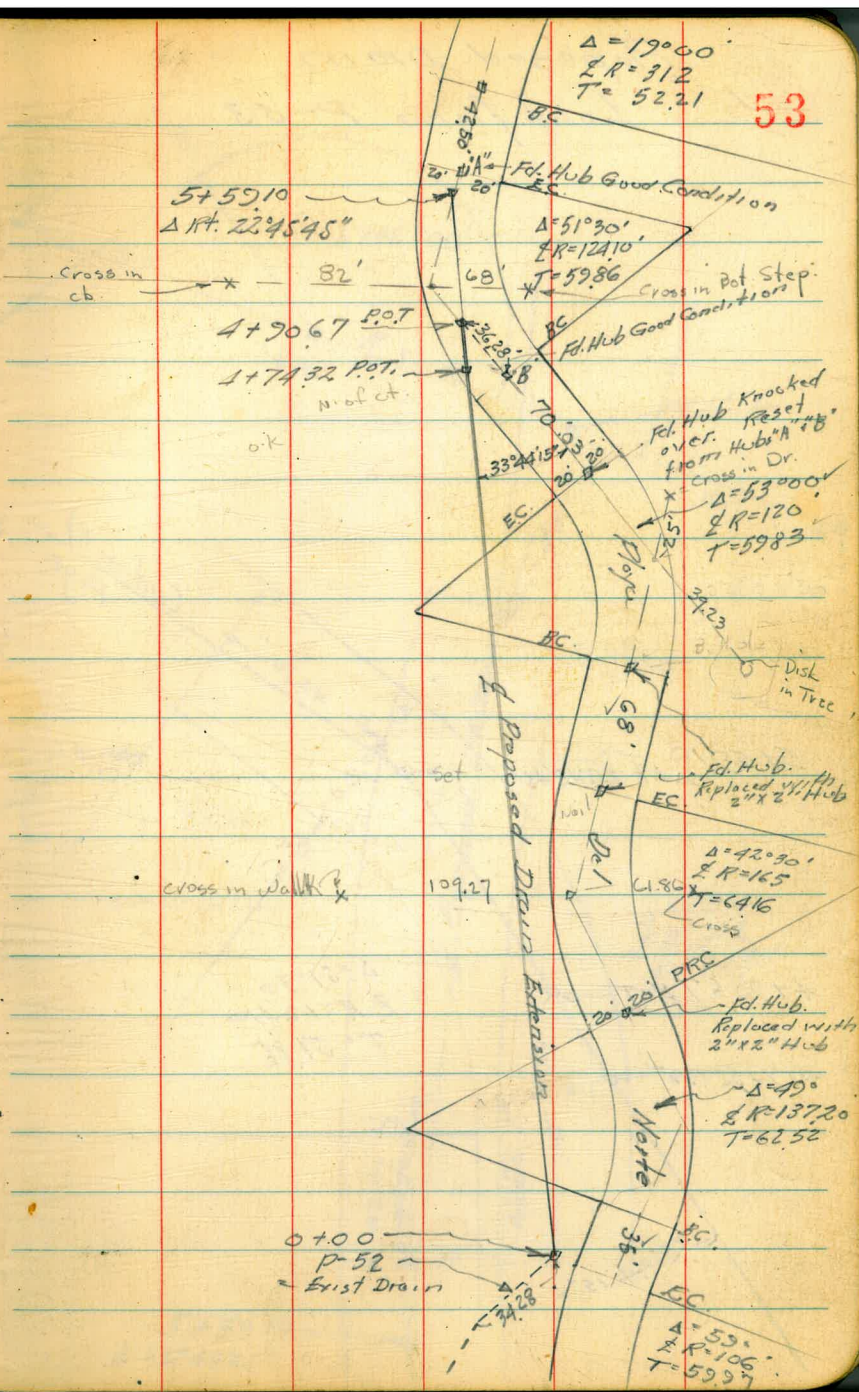 53
Δ = 19°00'
℄ R = 312
T = 52.21
B.C.
42.50'
"A"
Fd. Hub Good Condition
20'
20'
E.C.
5+59.10
Δ Rt. 22°45'45"
Δ=51°30'
℄ R=124.10'
T=59.86
Cross in
cb.
82'
68'
Cross in Bot Step.
4+90.67 P.O.T
BC
Fd. Hub Good Condition
36.28
"B"
4+74.32 P.O.T.
N. of ct.
o.k
70.03'
Fd. Hub Knocked
over. Reset
from Hubs "A" & "B"
Cross in Dr.
33°44'15"
20'
20'
E.C.
Δ=53°00'
℄ R=120'
T=59.83
52
Playa
39.23
B.C.
Disk
in Tree
68'
Set
Fd. Hub.
Replaced with
2"x2" Hub
E.C.
℄ Proposed Drain Extension
Del
Δ=42°30'
℄ R=165
T=64.16
Cross in Walk
109.27
61.86
Cross
PRC
20'
20'
Fd. Hub.
Replaced with
2"x2" Hub
Δ=49°
℄ R=137.20
T=62.52
Norte
36'
B.C.
0+00
P-52
= Exist Drain
34.28
E.C.
Δ=59°
℄ R=106'
T=59.97